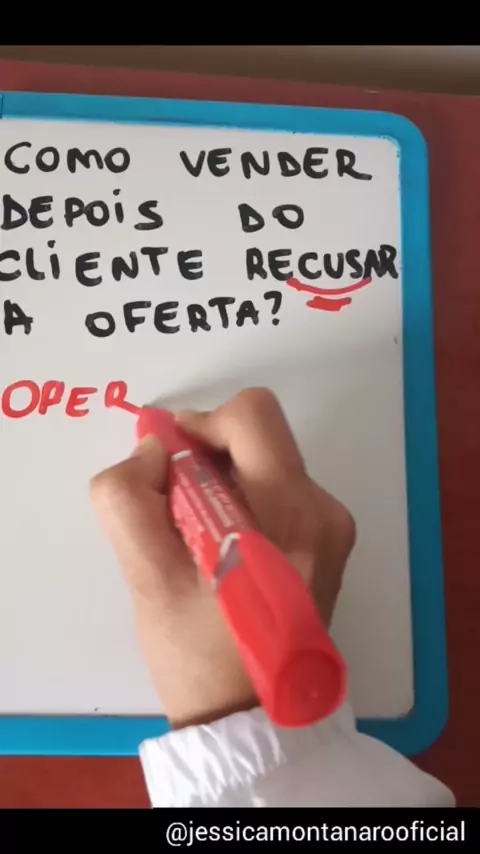 COMO VENDER
DEPOIS DO
CLIENTE RECUSAR
A OFERTA?
OPER
@jessicamontanarooficial